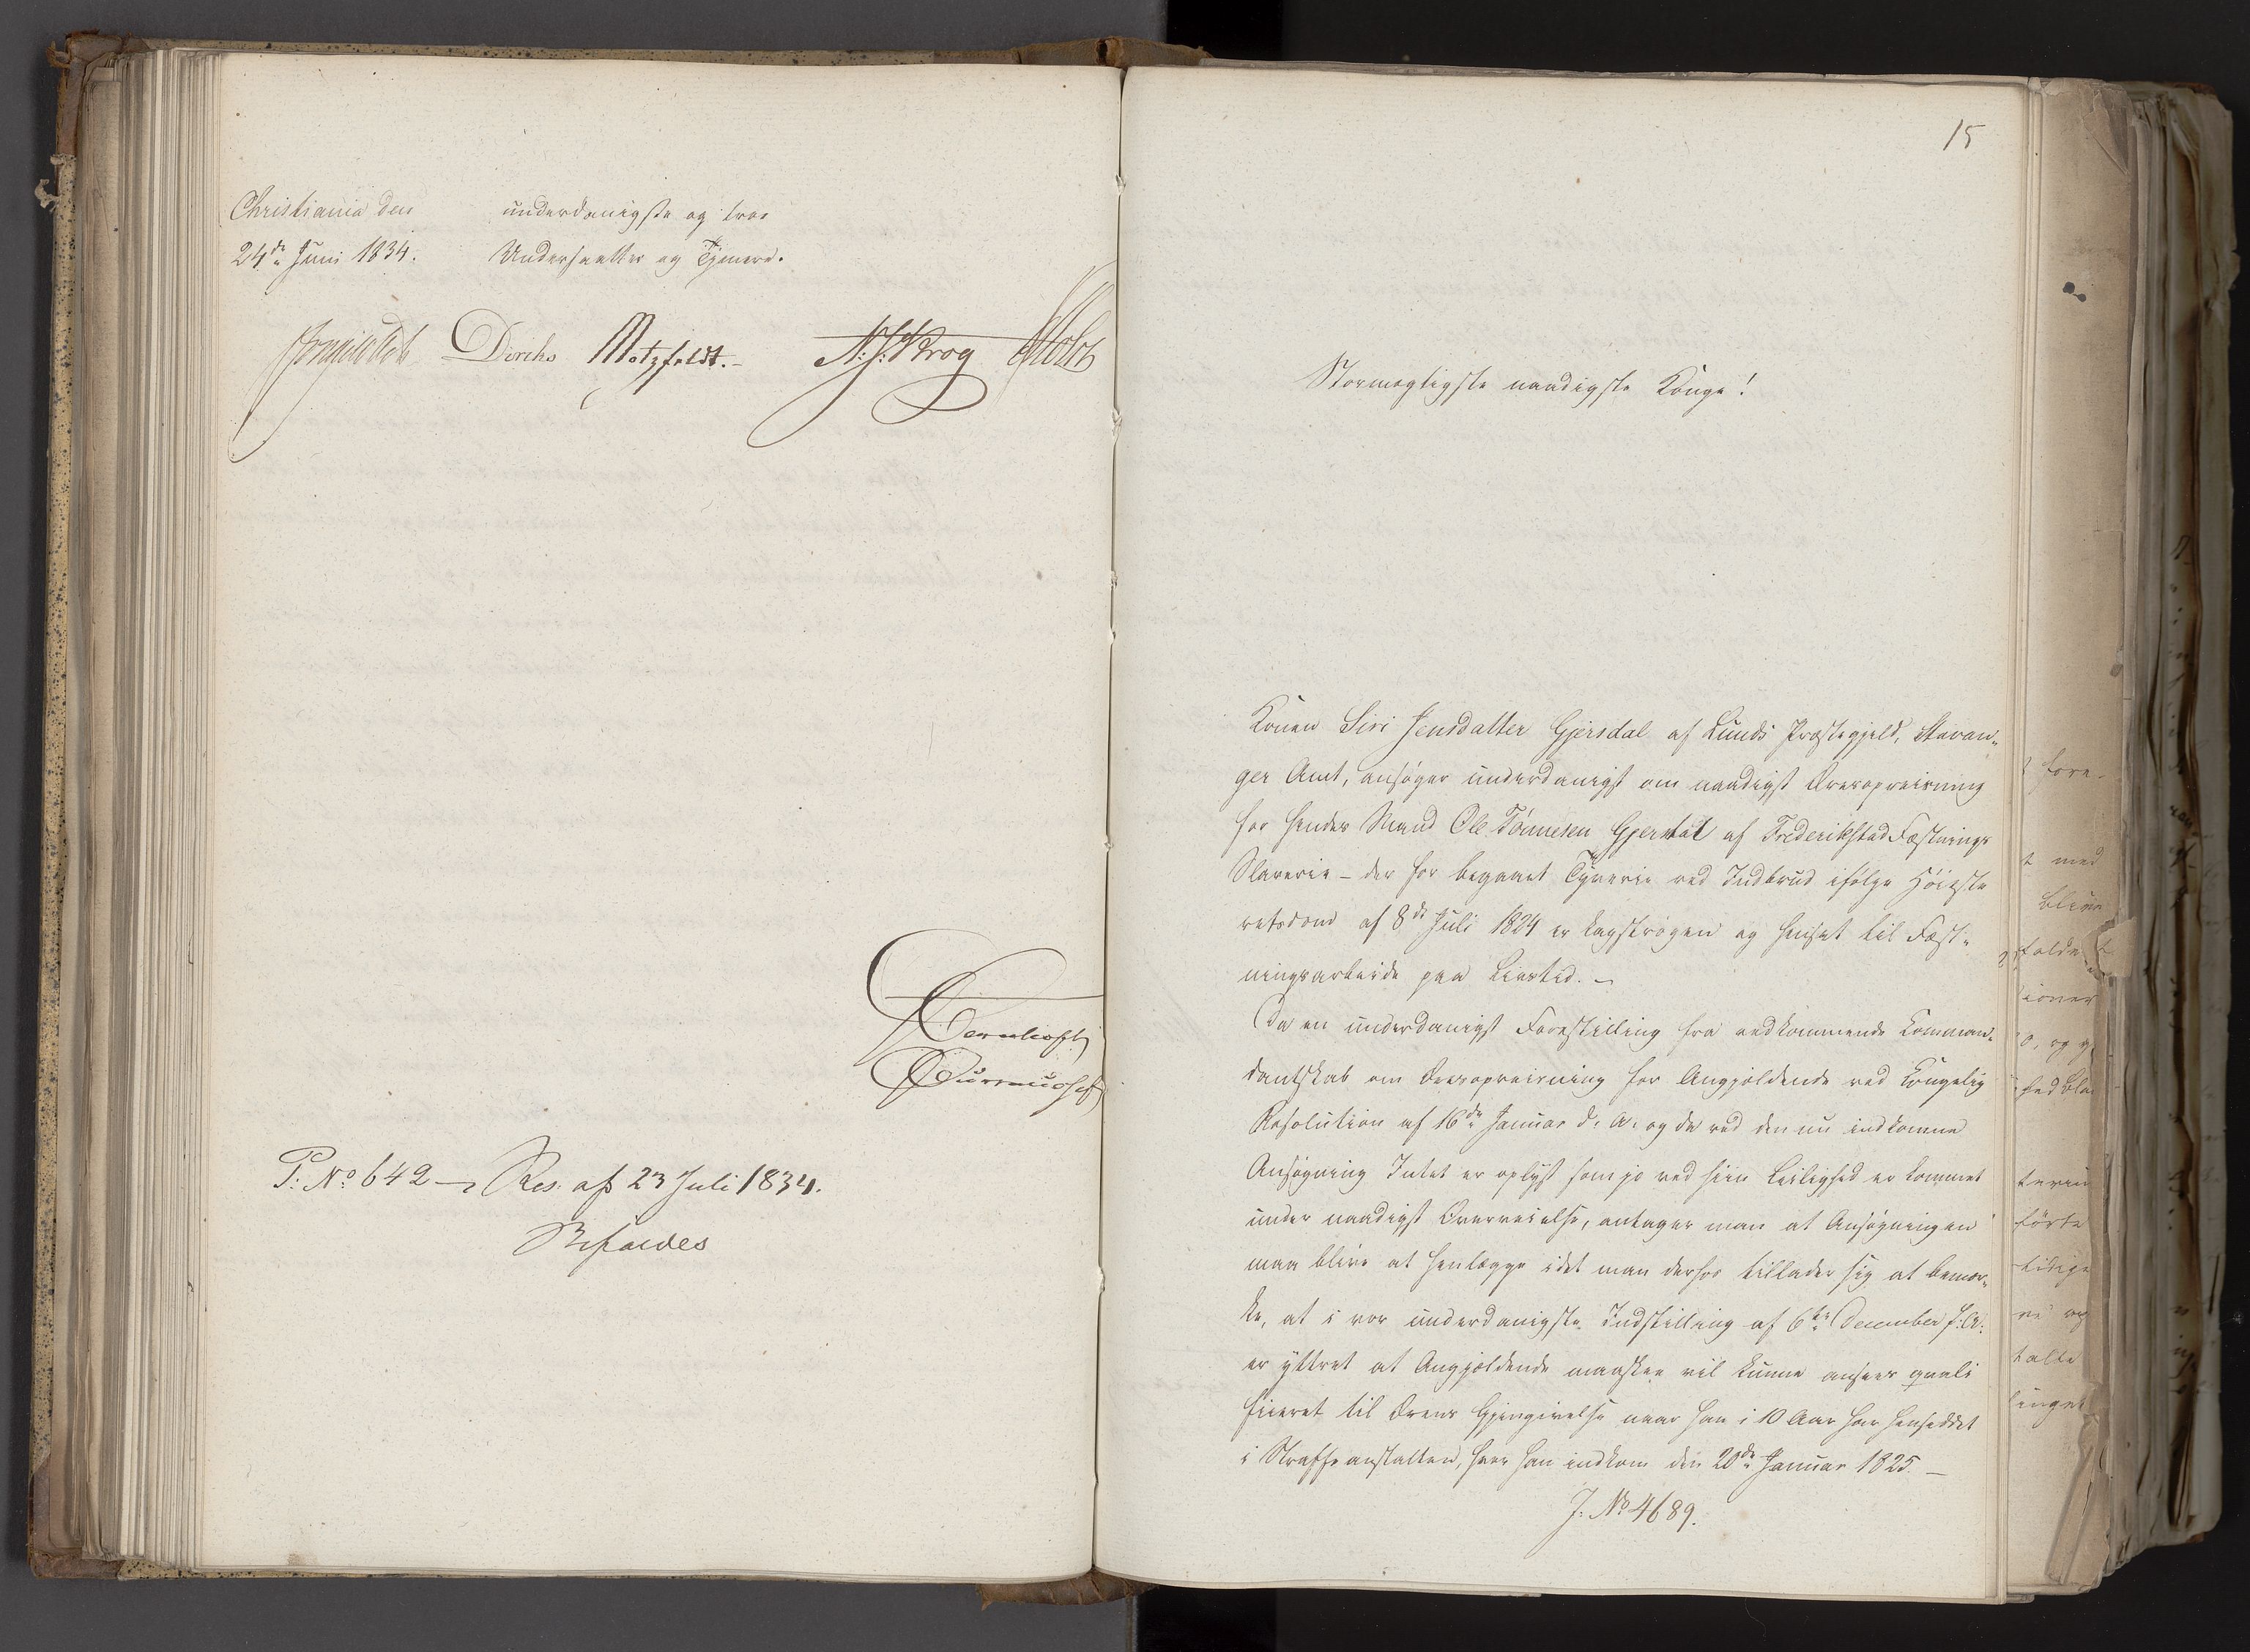 Christiania den
24de Juni 1834.
underdanigste og troe
Undersaatter og Tjenere.
Diriks Motzfeldt. N. J. Krog Holst
P: No 642 Res. af 23 Juli 1834.
Bifaldes
15
Stormægtigste naadigste Konge!
Konen Siri Jensdatter Gjersdal af Lunds Præstegjeld, Stavan-
ger Amt, ansøger underdanigst om naadigst Æresopreisning
for hendes Mand Ole Tönnesen Gjersdal af Frederikstad Fæstnings
Slaverie – der for begaaet Tyverie ved Indbrud ifølge Höieste
retsdom af 8de Juli 1824 er kagströgen og hensat til Fæst-
ningsarbeide paa Livstid. –
Da en underdanigst Forestilling fra vedkommende Komman-
dantskab om Æresopreisning for Angjældende ved Kongelig
Resolution af 16de Januar d. A. og da ved den nu indkomne
Ansøgning Intet er oplyst som jo ved hiin Leilighed er kommet
under naadigst Overveielse, antager man at Ansøgningen
maa blive at henlægge idet man derhos tillader sig at bemær-
ke, at i vor underdanigste Indstilling af 6te December f: A:
er yttret at Angjældende maaskee vil kunne ansees quali
ficeret til Ærens Gjengivelse naar han i 10 Aar har henseddet
i Straffeanstalten, hvor han indkom den 20de Januar 1825. –
J: No 4689.